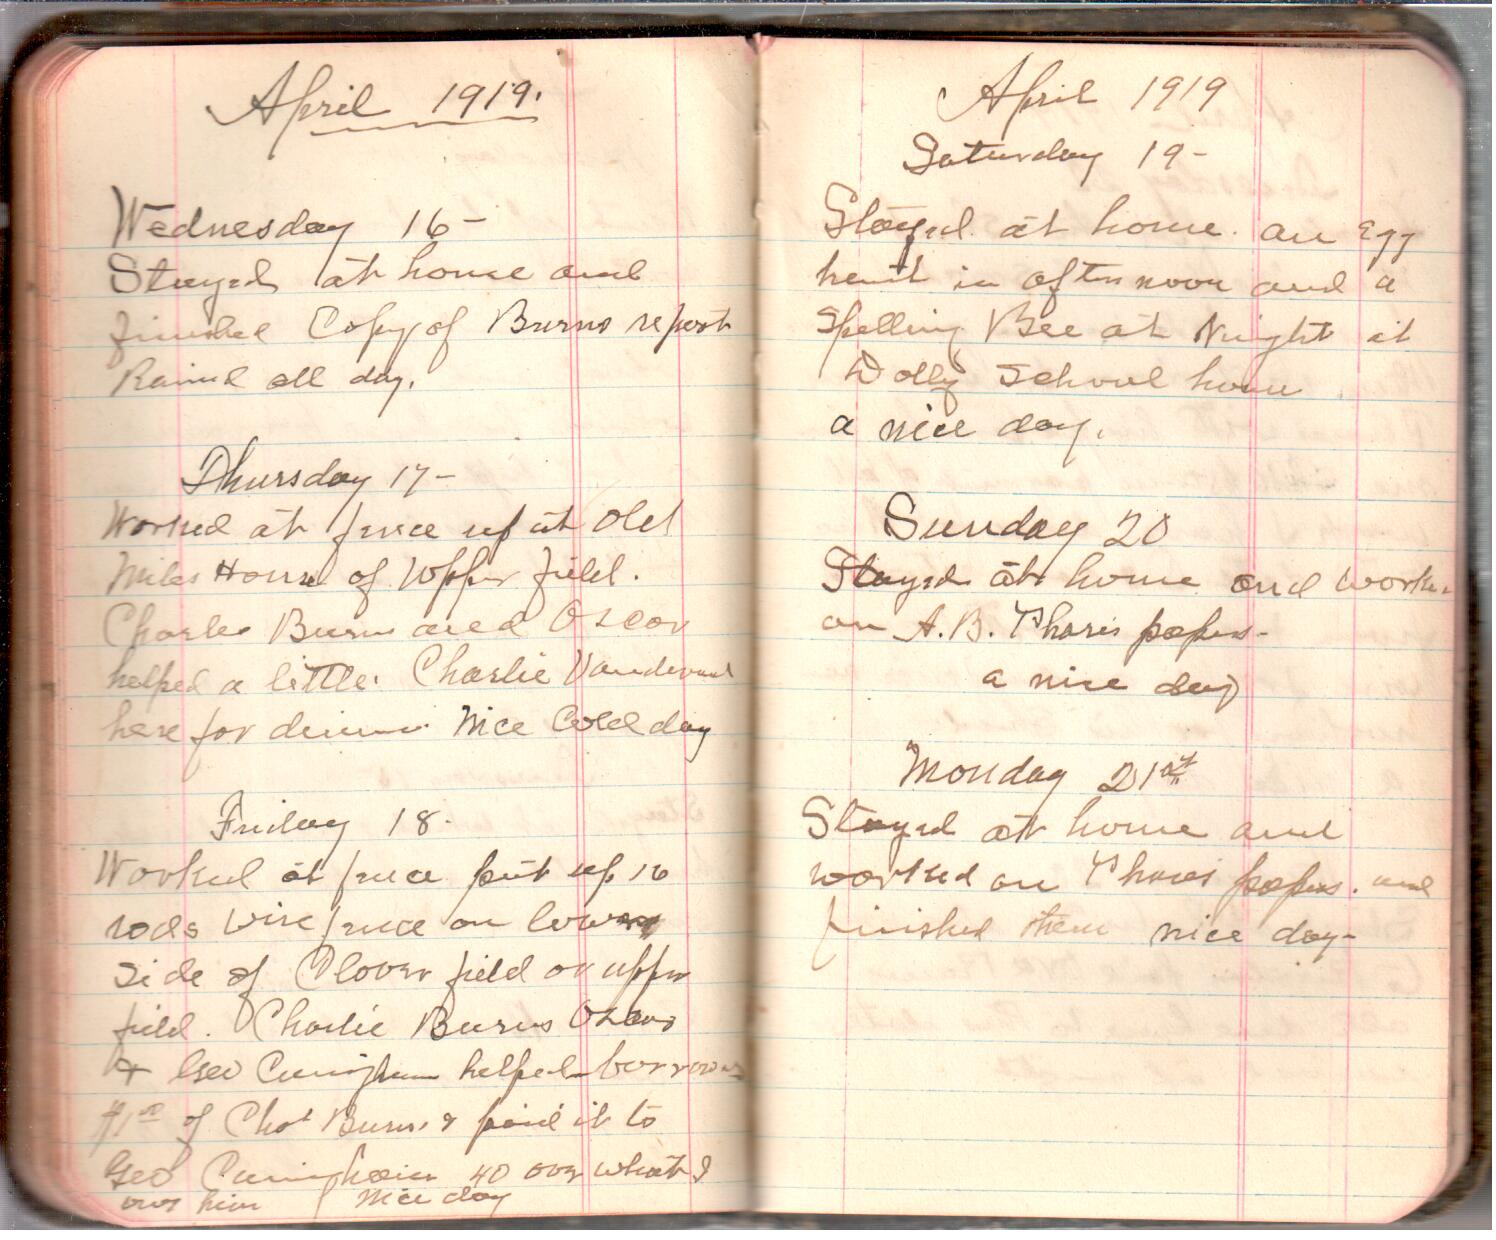 April 1919.
Wednesday 16-
Stayed at home and
finished Copy of Burns report
Rained all day.
Thursday 17-
Worked at fence up at Old
Miles House of Upper field.
Charles Burns and Oscar
helped a little. Charlie Vandevender
here for dinner. Nice Cold day
Friday 18-
Worked at fence put up 16
rods wire fence on lower
side of Clover field or upper
field. Charlie Burns Oscar
& Geo Cuningham helped borrowed
$1.00 of Chas Burns & paid it to
Geo Cuningham 40 over what I
owe him nice day
April 1919
Saturday 19-
Stayed at home. an Egg
hunt in afternoon and a
Spelling Bee at Night at
Dolly School house
a nice day.
Sunday 20
Stayed at home and worked
on A. B. Tharis papers-
a nice day
Monday 21st
Stayed at home and
worked on Tharis papers. and
finished them nice day-